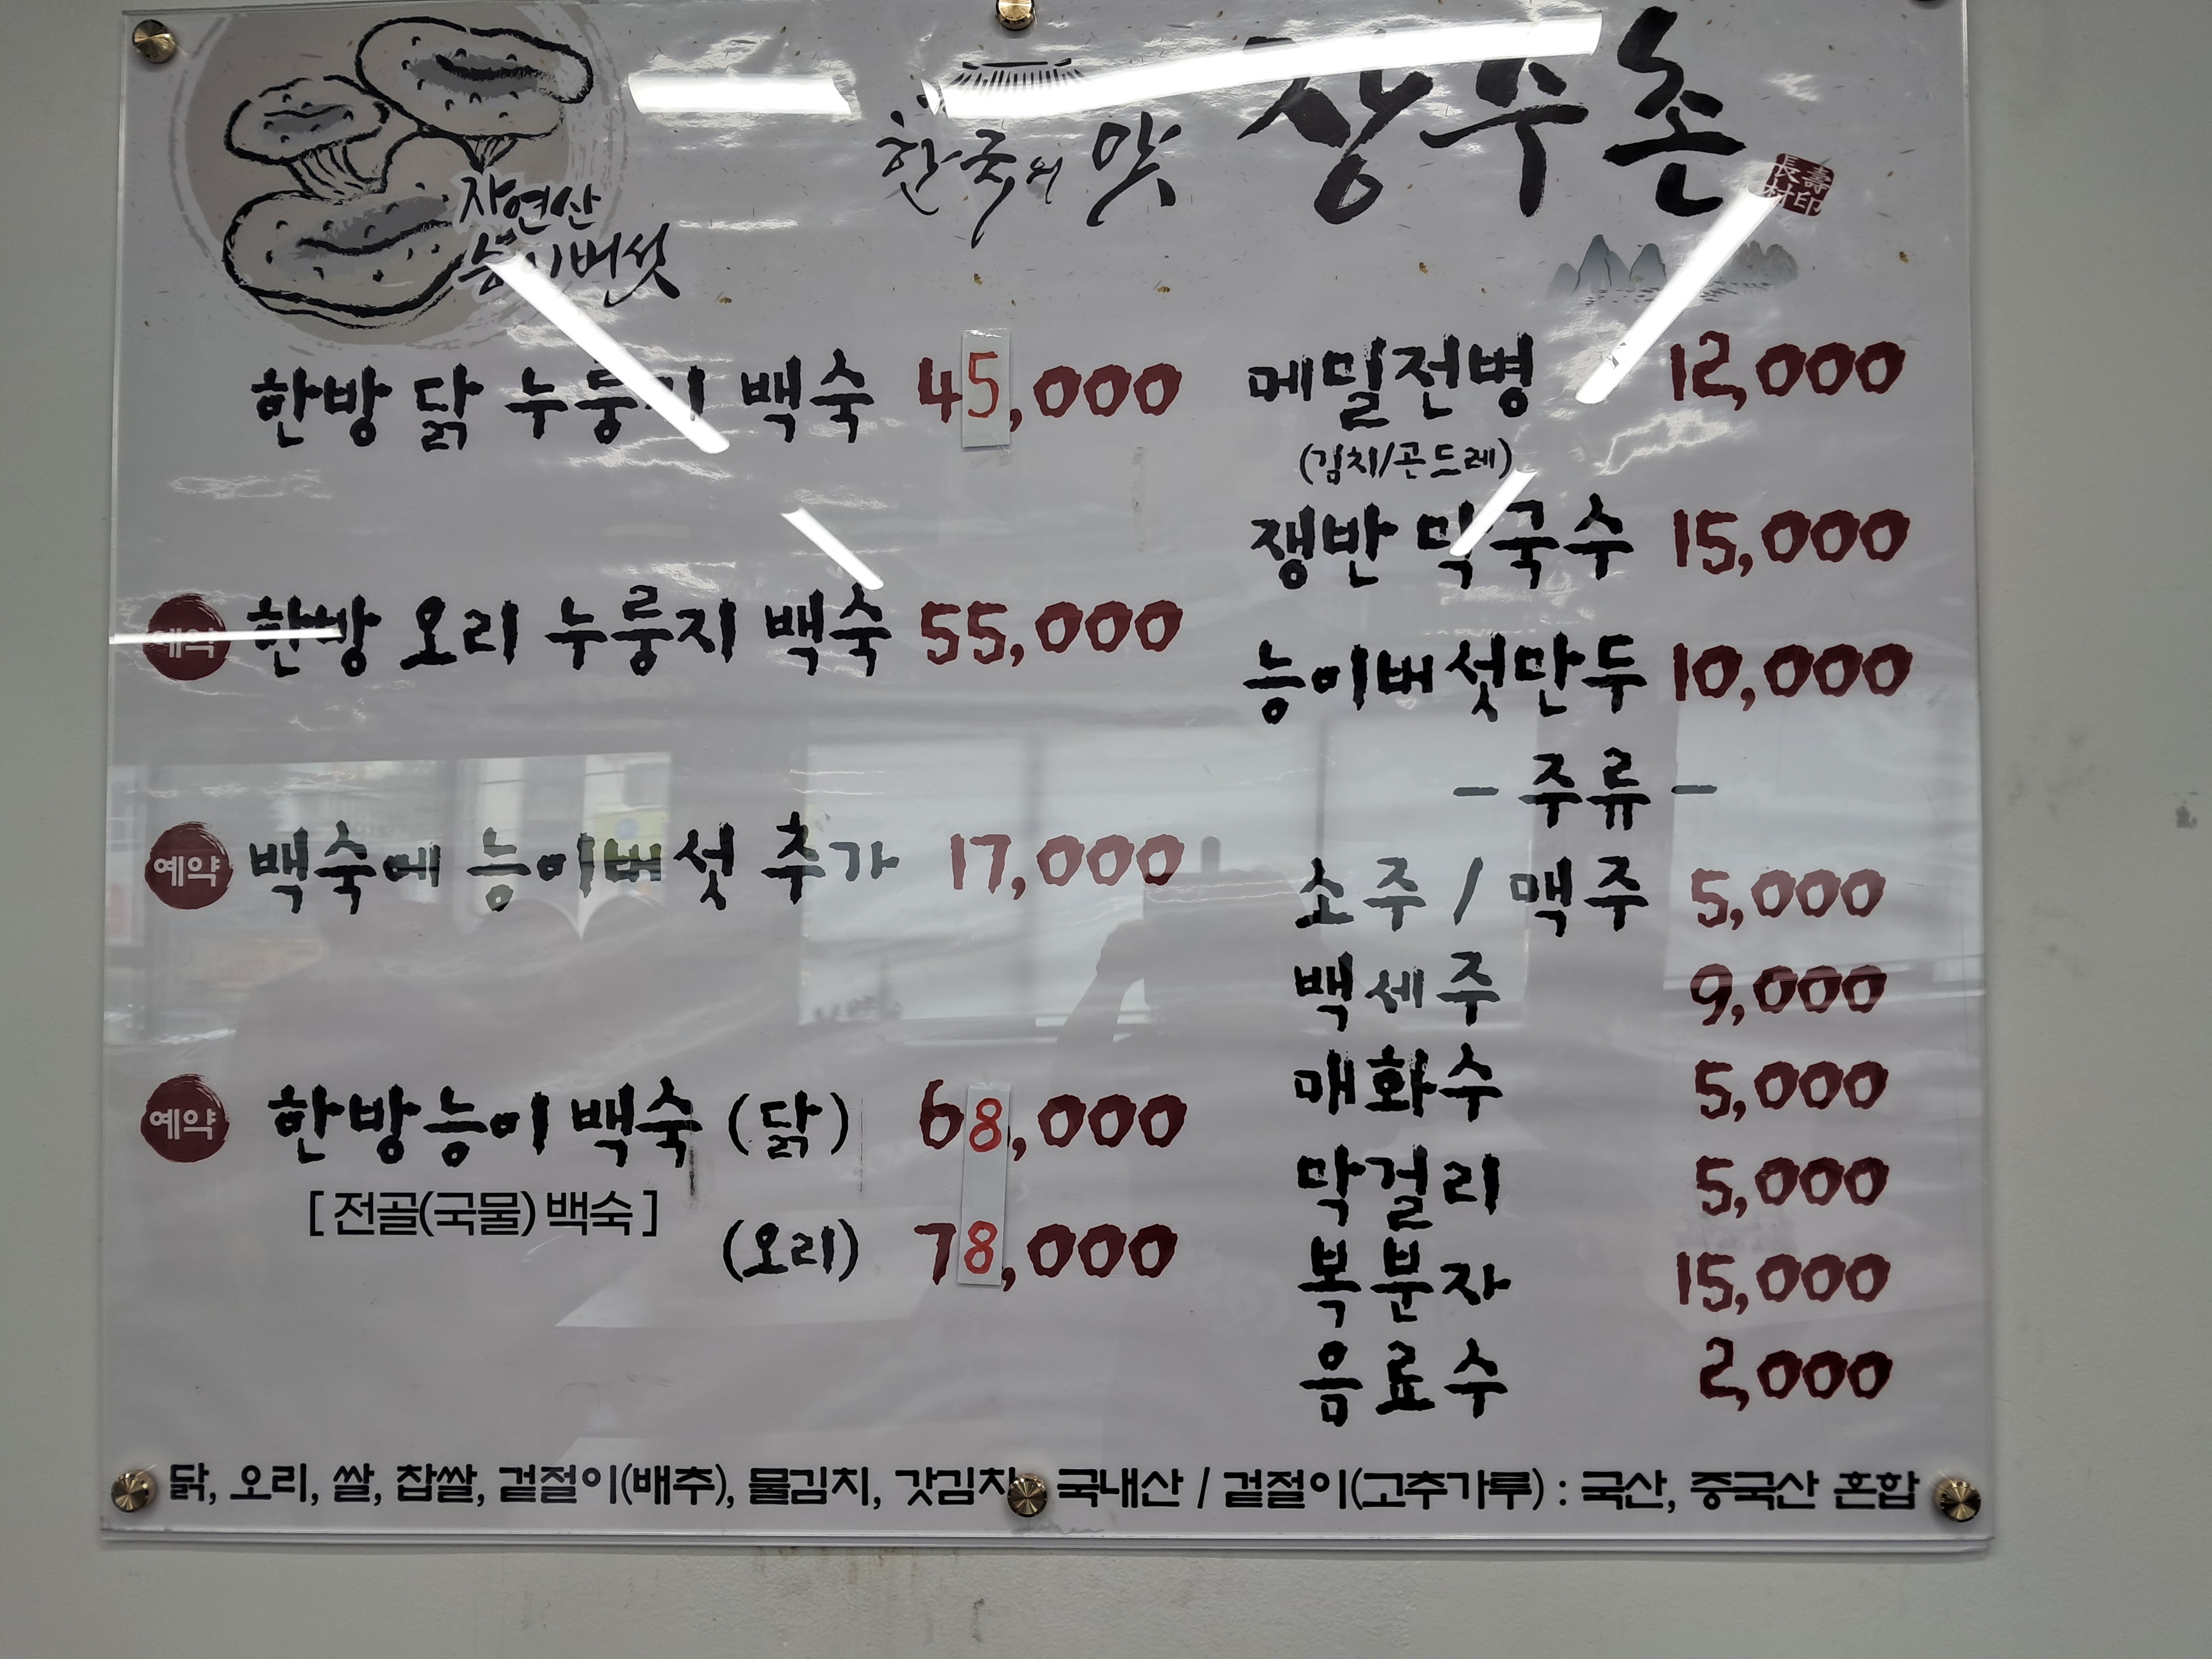 자연산
능이버섯
한국의 맛 장수촌
長壽
村印
한방 닭 누룽지 백숙 45,000
예약 한방 오리 누룽지 백숙 55,000
예약 백숙에 능이버섯 추가 17,000
예약 한방능이 백숙 (닭) 68,000
[ 전골(국물) 백숙 ]
(오리) 78,000
메밀전병 12,000
(김치/곤드레)
쟁반 막국수 15,000
능이버섯만두 10,000
- 주류 -
소주 / 맥주 5,000
백세주 9,000
매화수 5,000
막걸리 5,000
복분자 15,000
음료수 2,000
닭, 오리, 쌀, 찹쌀, 겉절이(배추), 물김치, 갓김치 국내산 / 겉절이(고추가루) : 국산, 중국산 혼합